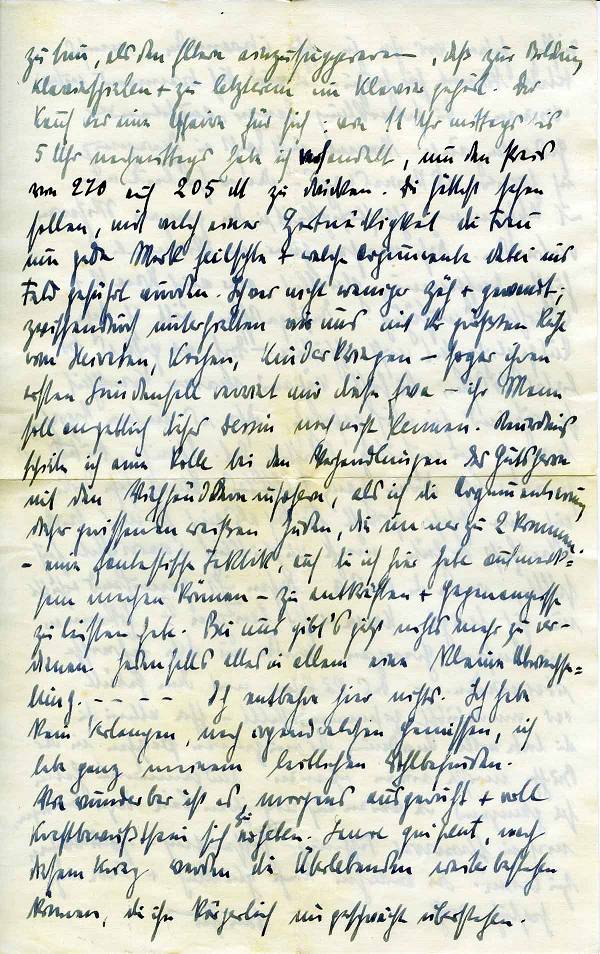 zu tun, als den Eltern einzusuggerieren, daß zur Bildung
Klavierspielen + zu letzterem ein Klavier gehört. Der
Kauf war eine Affaire für sich: von 11 Uhr mittags bis
5 Uhr nachmittags habe ich verhandelt, um den Preis
von 270 auf 205 M zu drücken. Du hättest sehen
sollen, mit welch einer Hartnäckigkeit die Frau
um jede Mark feilschte + welche Argumente dabei ins
Feld geführt wurden. Ich war nicht weniger zäh + gewandt;
zwischendurch unterhielten wir uns mit der größten Ruhe
vom Heiraten, Kochen, Kinder kriegen – sogar ihren
ersten verriet mir diese – ihr Mann
soll angeblich bisher davon noch nicht kennen.
scheine ich eine Rolle bei den Verhandlungen des Gutsherrn
mit den Viehhändlern insofern, als ich die Argumentierung
dieser gerissenen weißen Juden, die immer zu 2 kommen
– eine fantastische Taktik, auf die ich hier habe aufmerk=
sam machen können – zu entkräften + Gegenangriffe
zu leisten habe. Bei uns gibt's jetzt nichts mehr zu ver-
dienen. Jedenfalls alles in allem eine kleine Abwechse=
lung. – – – – – Ich entbehre hier nichts. Ich habe
kein Verlangen, nach irgendwelchen Genüssen, ich
lebe ganz meinem leiblichen Wohlbefinden.
Wie wunderbar ist es, morgens ausgeruht + voll
Kraftbewußtsein sich zu erheben. nach
diesem Krieg werden die Überlebenden weiter bestehen
können, die ihn körperlich ungeschwächt überstehen.